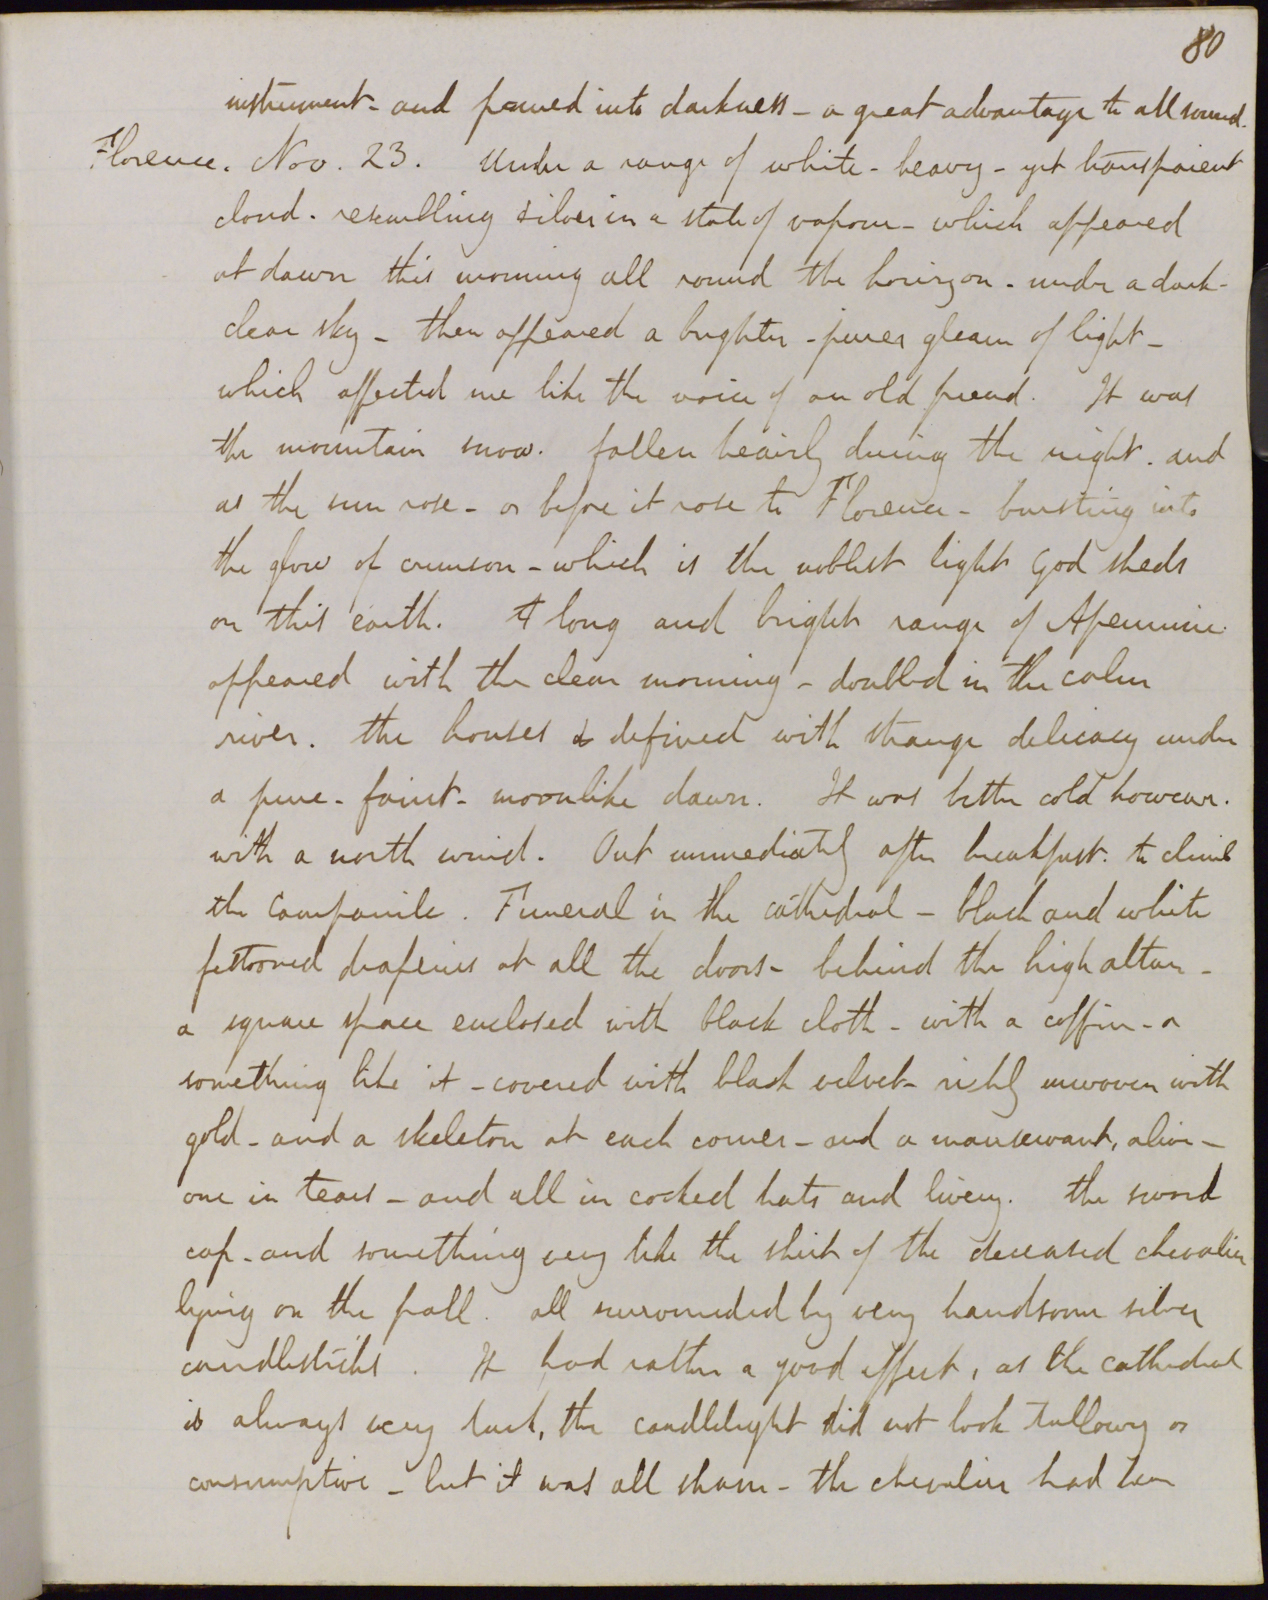 80
instrument - and poured into darkness - a great advantage to all sound.
Florence. Nov. 23. Under a range of white - heavy - yet transparent
cloud - resembling silver in a state of vapour - which appeared
at dawn this morning all round the horizon - under a dark -
clear sky - then appeared a brighter - purer gleam of light -
which affected me like the voice of an old friend. It was
the mountain snow. fallen heavily during the night. and
as the sun rose - or before it rose to Florence - bursting into
the glow of crimson - which is the noblest light God sheds
on this earth. A long and bright range of Apennine
appeared with the clear morning - doubled in the calm
river. the houses defined with strange delicacy under
a pure - faint - moonlike dawn. It was bitter cold however.
with a north wind. Out immediately after breakfast. to climb
the Campanile. Funeral in the cathedral - black and white
festooned draperies at all the doors - behind the high altar -
a square space enclosed with black cloth - with a coffin - or
something like it - covered with black velvet - richly inwoven with
gold - and a skeleton at each corner - and a manservant, alive -
one in tears - and all in cocked hats and livery. the sword
cap - and something very like the shirt of the deceased chevalier
lying on the pall. all surrounded by very handsome silver
candlesticks. It had rather a good effect, as the cathedral
is always very dark, the candlelight did not look tallowy or
consumptive - but it was all sham - the chevalier had been